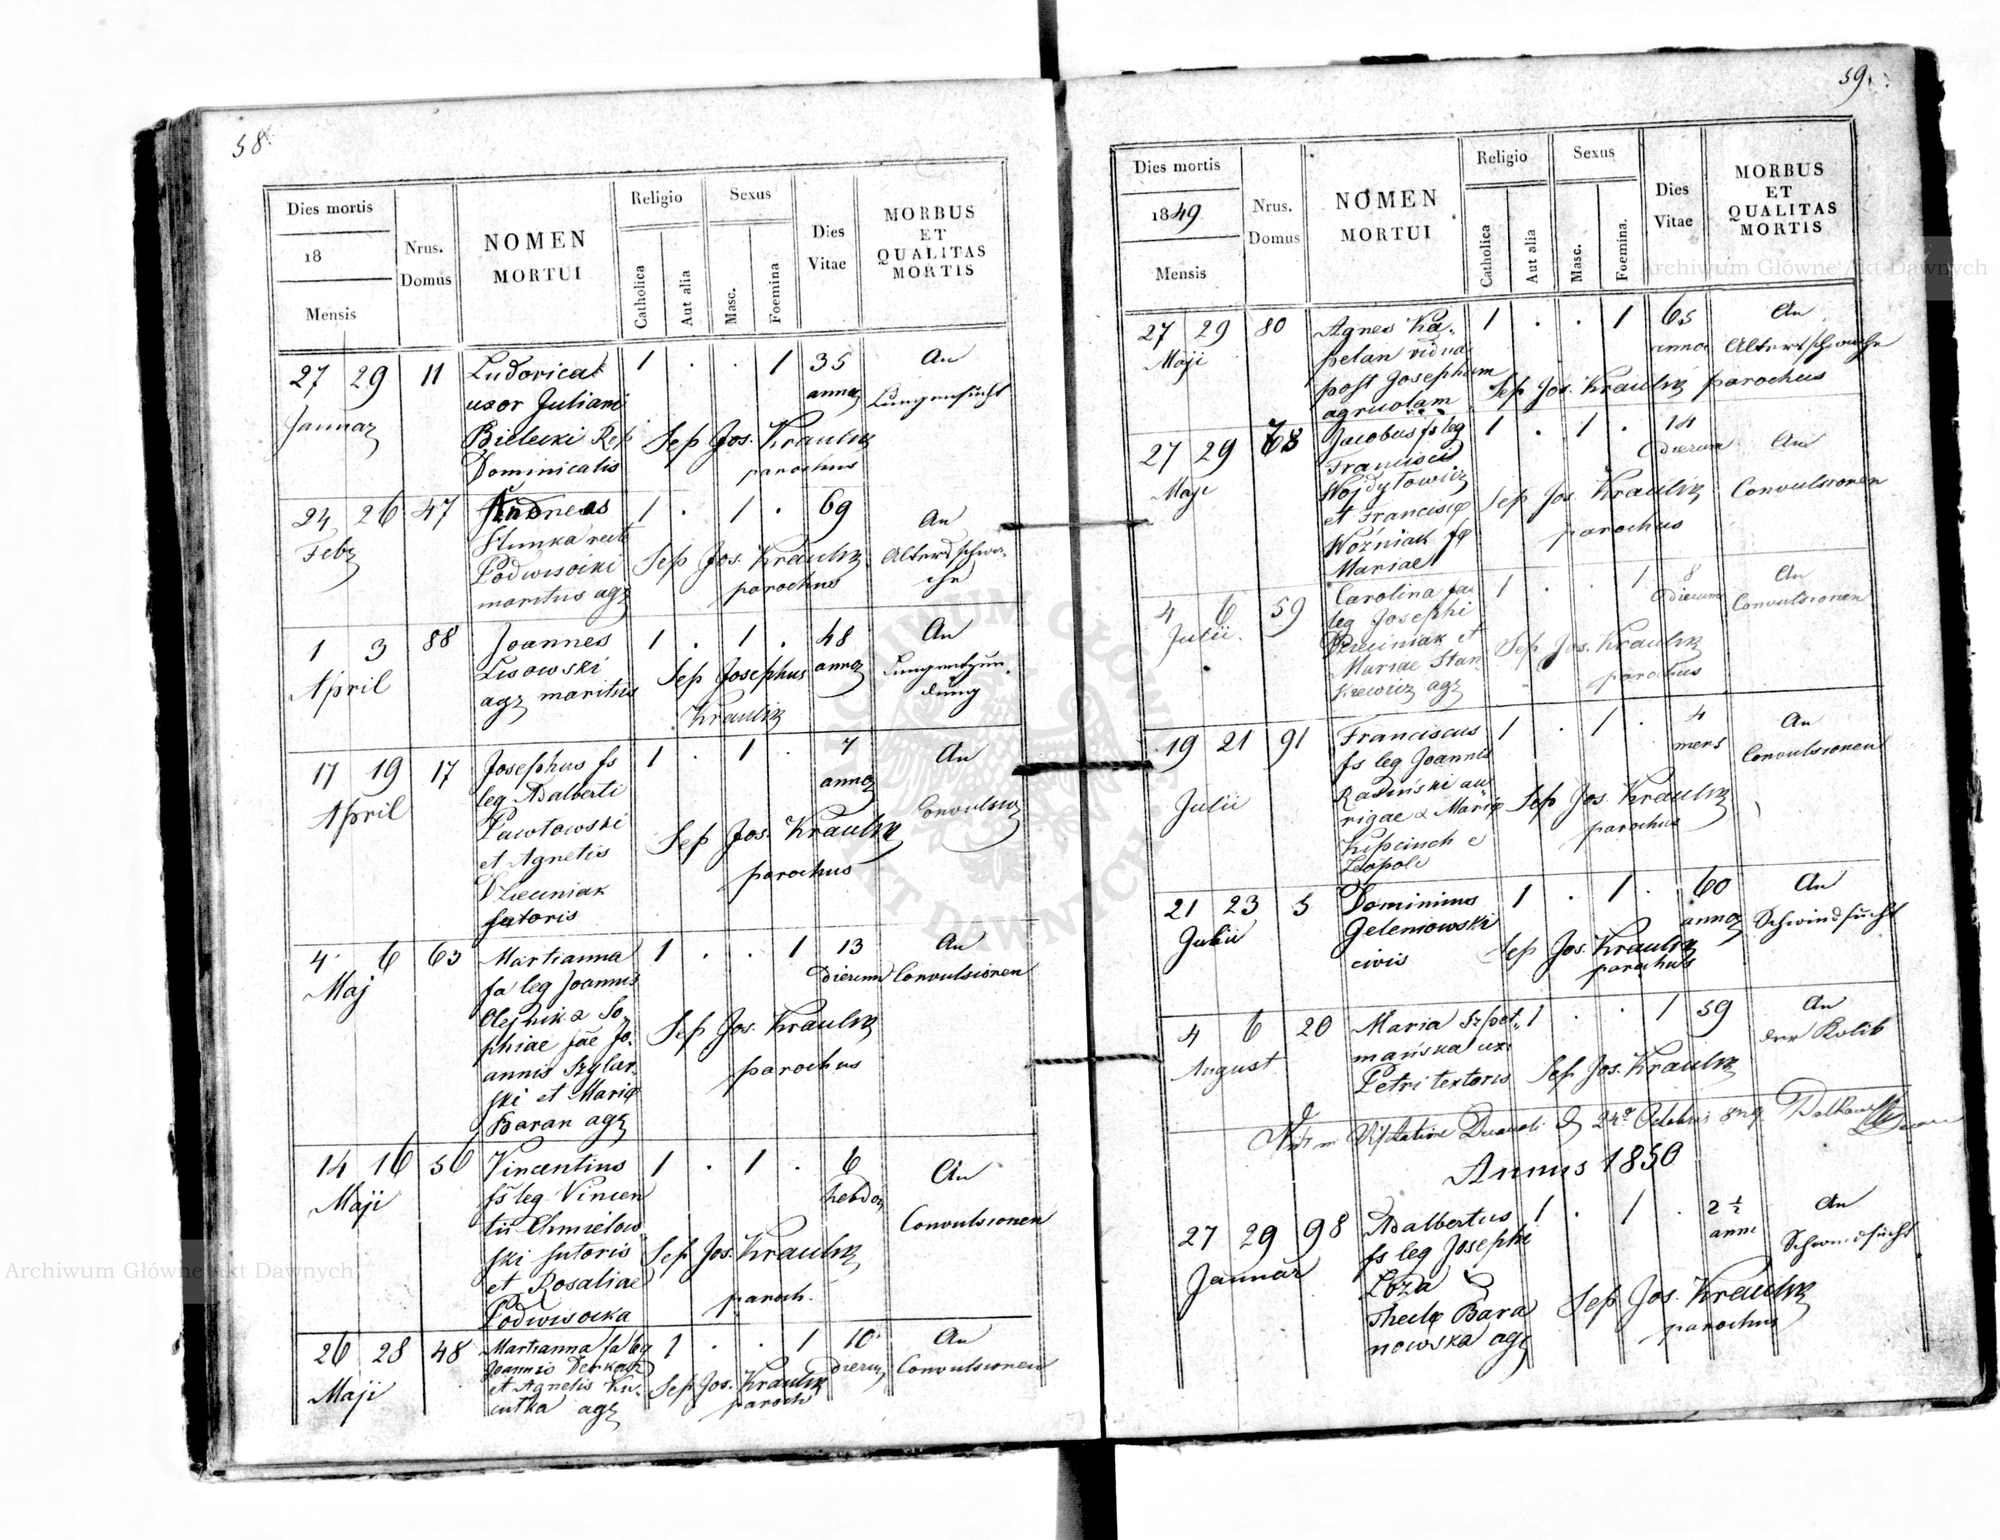 58.
Dies mortis
18
Mensis
Nrus.
Domus
NOMEN
MORTUI
Religio
Catholica
Aut alia
Sexus
Masc.
Foemina
Dies
Vitae
MORBUS
ET
QUALITAS
MORTIS
27 29 11 Ludovica 1 . . 1 35 An
Januar uxor Juliani annor Lungensucht
Bielecki
Dominicalis
Sep Jos. Kraulik
parochus
24 26 47 Andreas 1 . 1 . 69 An
Febr Slunka recte Altersschwa-
Podwisocki che
maritus agr
Sep Jos. Kraulik
parochus
1 3 88 Joannes 1 . 1 . 48 An
April Lisowski annor
agr maritus
Sep Josephus
Kraulik
17 19 17 Josephus fs 1 . 1 . 7 An
April leg Adalberti annor
Pawłowski
et Agnetis
Dzieciniak
sutoris
Sep Jos. Kraulik
parochus
4 6 63 Marianna 1 . . 1 13 An
Maj fa leg Joannis dierum Convulsionen
Olejnik & So-
phiae fae Jo-
annis Szylar-
ski et Mariæ
Baran agr
Sep Jos. Kraulik
parochus
14 16 56 Vincentius 1 . 1 . 6 An
Maji fs leg Vincen hebdo Convulsionen
tii Chmielow
ski sutoris
et Rosaliae
Podwisocka
Sep Jos. Kraulik
paroch.
26 28 48 Marianna fa leg 1 . . 1 10 An
Maji Joannis Derkacz dierum Convulsionen
et Agnetis
agr
Sep Jos. Kraulik
paroch
59.
Dies mortis
1849
Mensis
Nrus.
Domus
NOMEN
MORTUI
Religio
Catholica
Aut alia
Sexus
Masc.
Foemina.
Dies
Vitae
MORBUS
ET
QUALITAS
MORTIS
27 29 80 Agnes Ka- 1 . . 1 65 An
Maji pelan vidua annor Altersschwache
post Josephum
agricolam
Sep Jos. Kraulik parochus
27 29 68 Jacobus fs leg 1 . 1 . 14 An
Maji Francisci dierum Convulsionen
Wojdyłowicz
et Franciscæ
Woźniak fæ
Mariae
Sep Jos Kraulik
parochus
4 6 59 Carolina fa 1 . . 1 8 An
Julii. leg Josephi dierum Convulsionen
Dzieciniak et
Mariae Stan-
kiewicz agr
Sep Jos. Kraulik
parochus
19 21 91 Franciscus 1 . 1 . 4 An
Julii fs leg Joannis mens Convulsionen
Radiński au-
rigae & Mariæ
Leopoli
Sep Jos. Kraulik
parochus
21 23 5 Dominicus 1 . 1 . 60 An
Julii Jeleniowski annor Schwindsucht
civis
Sep Jos. Kraulik
parochus
4 6 20 Maria Szpot- 1 . . 1 59 An
August mańska ux. der Kolik
Petri textoris
Sep Jos. Kraulik
in Visitatione Decanali 24 Octobris
Annus 1850
27 29 98 Adalbertus 1 . 1 . 2 1/2 An
Januar fs leg Josephi anni Schwindsucht
Łoza &
Theclæ Bara
nowska agr
Sep Jos. Kraulik
parochus
Archiwum Główne Akt Dawnych
Archiwum Główne Akt Dawnych
ARCHIWUM GŁÓWNE AKT DAWNYCH